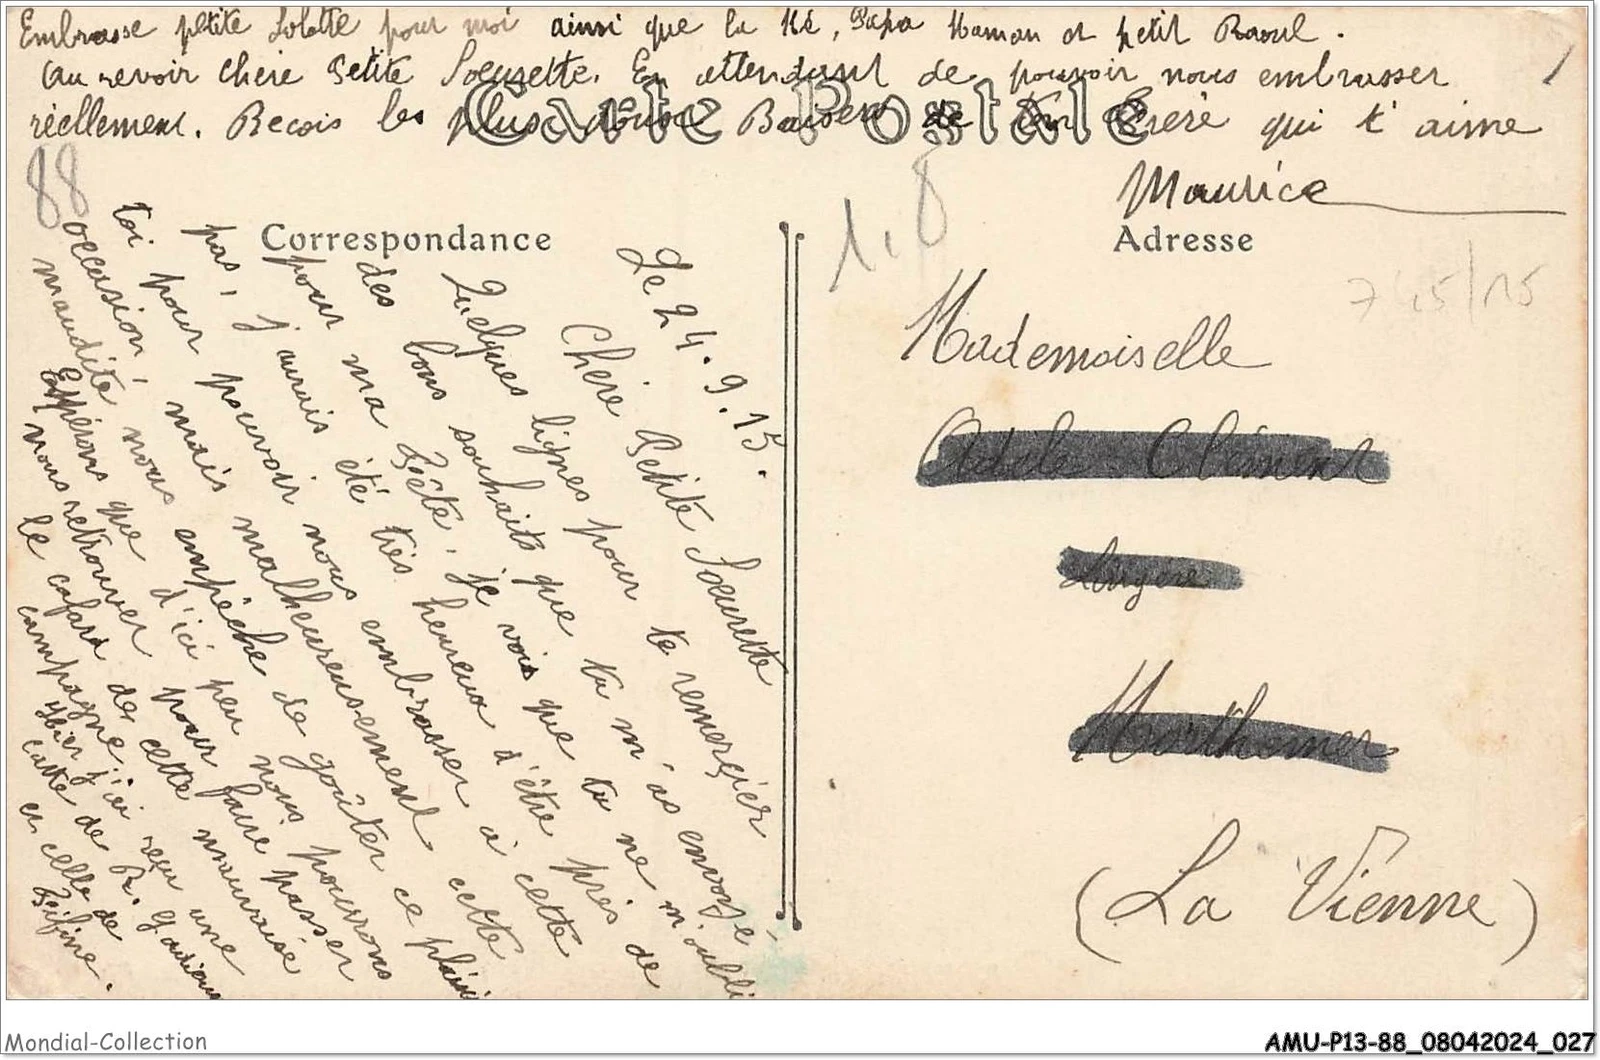 Embrasse petite Lolotte pour moi ainsi que la Ké, Papa Maman et petit Raoul.
Au revoir chère Petite Soeurette. En attendant de pouvoir nous embrasser
réellement. Recois les plus doux Baisers de ton Frère qui t'aime
Maurice
Carte Postale
88
1,8
Correspondance
Le 24.9.15.
Chère Petite Soeurette
Quelques lignes pour te remercier
des bons souhaits que tu m'as envoyé,
pour ma Fête, je vois que tu ne m'oubli
pas, j'aurais été très heureux d'être près de
toi pour pouvoir nous embrasser à cette
occasion, mais malheureusement cette
maudite nous empêche de goûter ce plaisir
Espérons que d'ici peu nous pourrons
nous retrouver pour faire passer
le cafard de cette mauvaise
campagne. j'ai reçu une
hier
carte de
et celle de
Fifine.
Adresse
Mademoiselle
Adèle Clément
Lingère
Morthemer
(La Vienne)
Mondial-Collection
AMU-P13-88_08042024_027